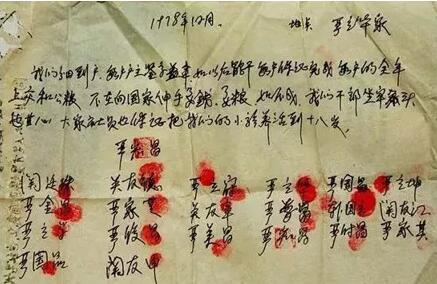 1978年12月. 地点 严立华家
我们分田到户 每户户主签字盖章 如以后能干 每户保证完成每户的全年
上交和公粮 不在向国家伸手要钱要粮 如不成 我们干部坐牢杀头
也甘心 大家社员也保证把我们的小孩养活到十八岁。
严宏昌
关廷珠 关友德 严立富 严立华 严国昌 严立坤
严金昌 严家芝 关友章 严学昌 韩国云 关友江
严立学 严俊昌 严美昌 严付昌 严家其
严国品 关友申